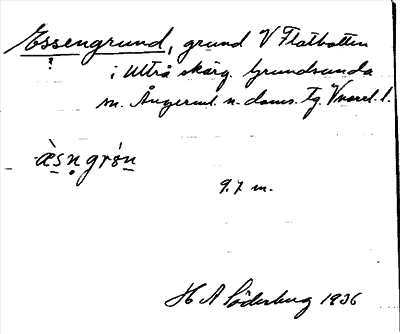 Essengrund, grund V Flatbotten
i Ultrå skärg. Grundsunda
sn. Ångerml. n. doms. Tg.
æ̀sn̥grɷ́n
9.7 m.
H A Söderberg 1936